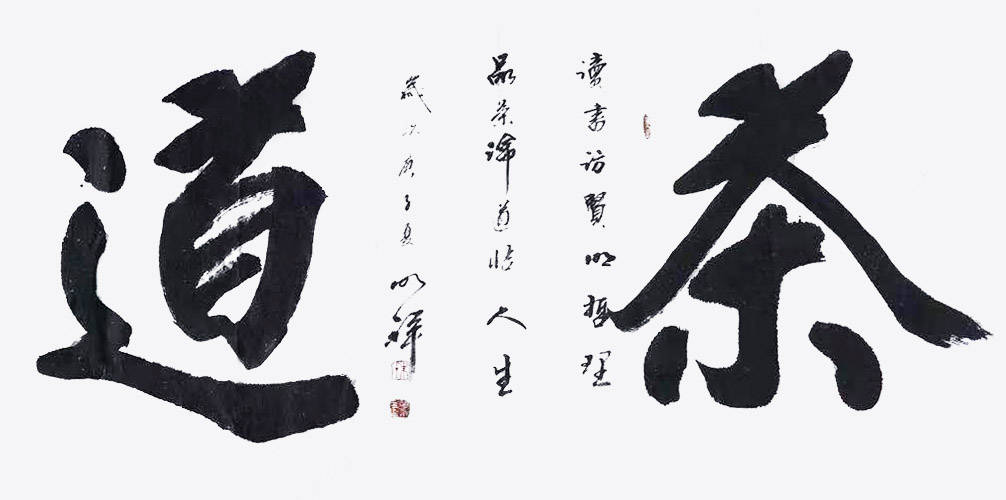 茶道
讀書訪賢明哲理
品茶論道悟人生
歲次庚子夏 明祥